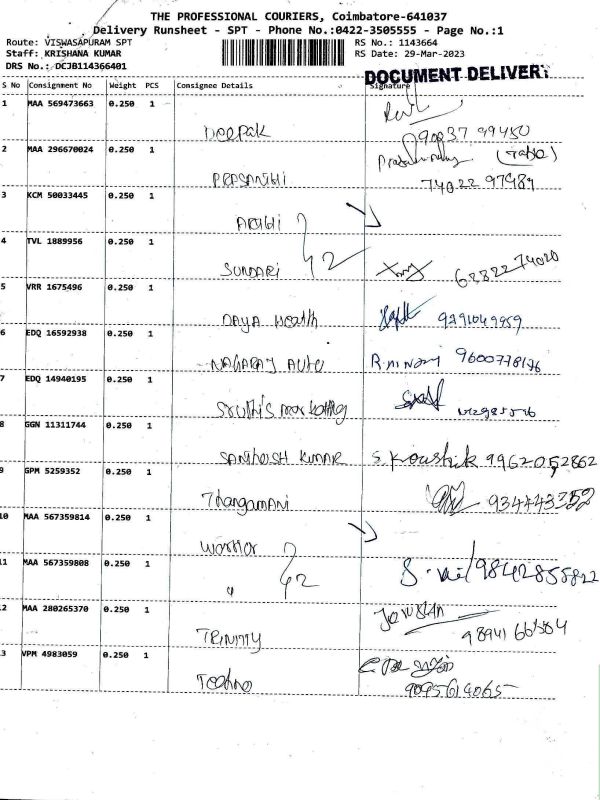 THE PROFESSIONAL COURIERS, Coimbatore-641037
Delivery Runsheet - SPT - Phone No.:0422-3505555 - Page No.:1
Route: VISWASAPURAM SPT RS No.: 1143664
Staff: KRISHANA KUMAR RS Date: 29-Mar-2023
DRS No.: DCJB114366401
DOCUMENT DELIVERY
S No Consignment No Weight PCS Consignee Details Signature
1 MAA 569473663 0.250 1
Deepak 90037 99450
2 MAA 296670024 0.250 1
PRASANTHI 74022 97489
3 KCM 50033445 0.250 1
4 TVL 1889956 0.250 1
SUNDARI 62822 74020
5 VRR 1675496 0.250 1
DAYA Health 9791049959
6 EDQ 16592938 0.250 1
NAGARAJ Auto 9600778176
7 EDQ 14940195 0.250 1
Sruthi's marketing
8 GGN 11311744 0.250 1
SANTHOSH KUMAR S. Koushik 9962052862
9 GPM 5259352 0.250 1
Thangamani 934443352
10 MAA 567359814 0.250 1
Warrior
11 MAA 567359808 0.250 1
" 9842855822
12 MAA 280265370 0.250 1
TRINITY 98941 66584
13 VPM 4983059 0.250 1
Techno 9095614065